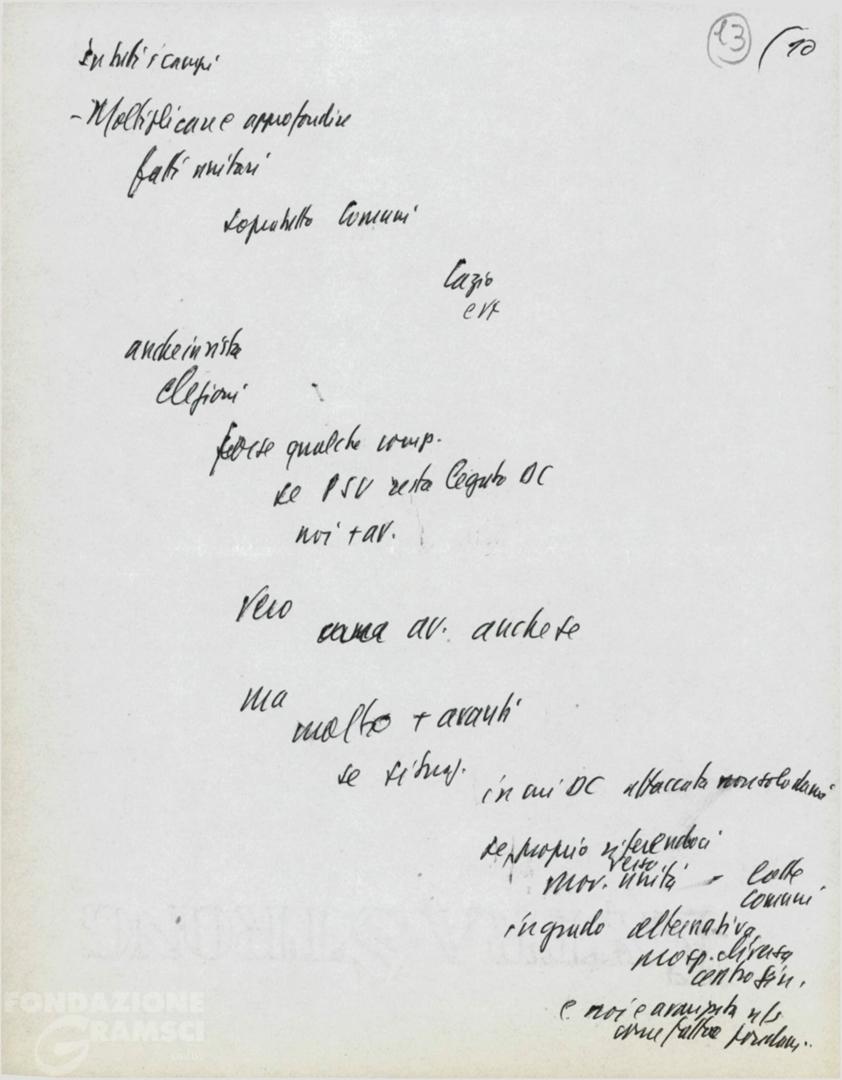 13 (10
In tutti i campi
- Moltiplicare e approfondire
fatti unitari
sopratutto Comuni
Lazio
anche in vista
elezioni
forse qualche comp.
se PSU resta legato DC
noi + av.
Vero
av. anche se
ma
molto + avanti
se situaz.
in cui DC attaccata non solo da noi
se proprio riferendoci
verso
mov. unità - lotte
comuni
in grado alternativa
prosp. diversa
centro sin.
e noi e avanzata
come
FONDAZIONE
GRAMSCI